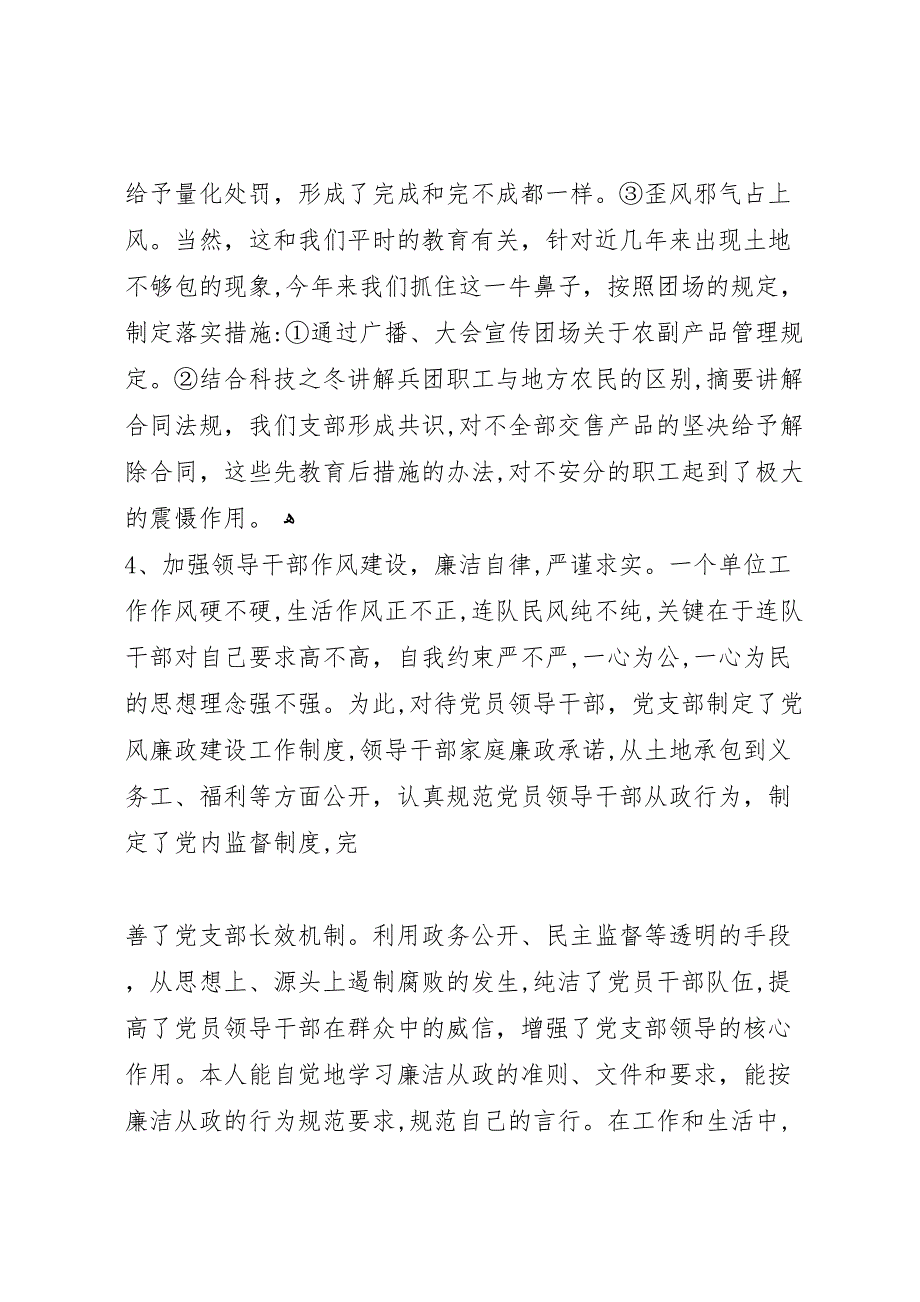 给予量化处罚，形成了完成和完不成都一样。③歪风邪气占上
风。当然，这和我们平时的教育有关，针对近几年来出现土地
不够包的现象,今年来我们抓住这一牛鼻子，按照团场的规定，
制定落实措施:①通过广播、大会宣传团场关于农副产品管理规
定。②结合科技之冬讲解兵团职工与地方农民的区别,摘要讲解
合同法规，我们支部形成共识,对不全部交售产品的坚决给予解
除合同，这些先教育后措施的办法,对不安分的职工起到了极大
的震慑作用。 ﻫ
4、加强领导干部作风建设，廉洁自律,严谨求实。一个单位工
作作风硬不硬,生活作风正不正,连队民风纯不纯,关键在于连队
干部对自己要求高不高，自我约束严不严,一心为公,一心为民
的思想理念强不强。为此,对待党员领导干部，党支部制定了党
风廉政建设工作制度,领导干部家庭廉政承诺,从土地承包到义
务工、福利等方面公开，认真规范党员领导干部从政行为，制
定了党内监督制度,完
善了党支部长效机制。利用政务公开、民主监督等透明的手段
，从思想上、源头上遏制腐败的发生,纯洁了党员干部队伍,提
高了党员领导干部在群众中的威信，增强了党支部领导的核心
作用。本人能自觉地学习廉洁从政的准则、文件和要求，能按
廉洁从政的行为规范要求,规范自己的言行。在工作和生活中,